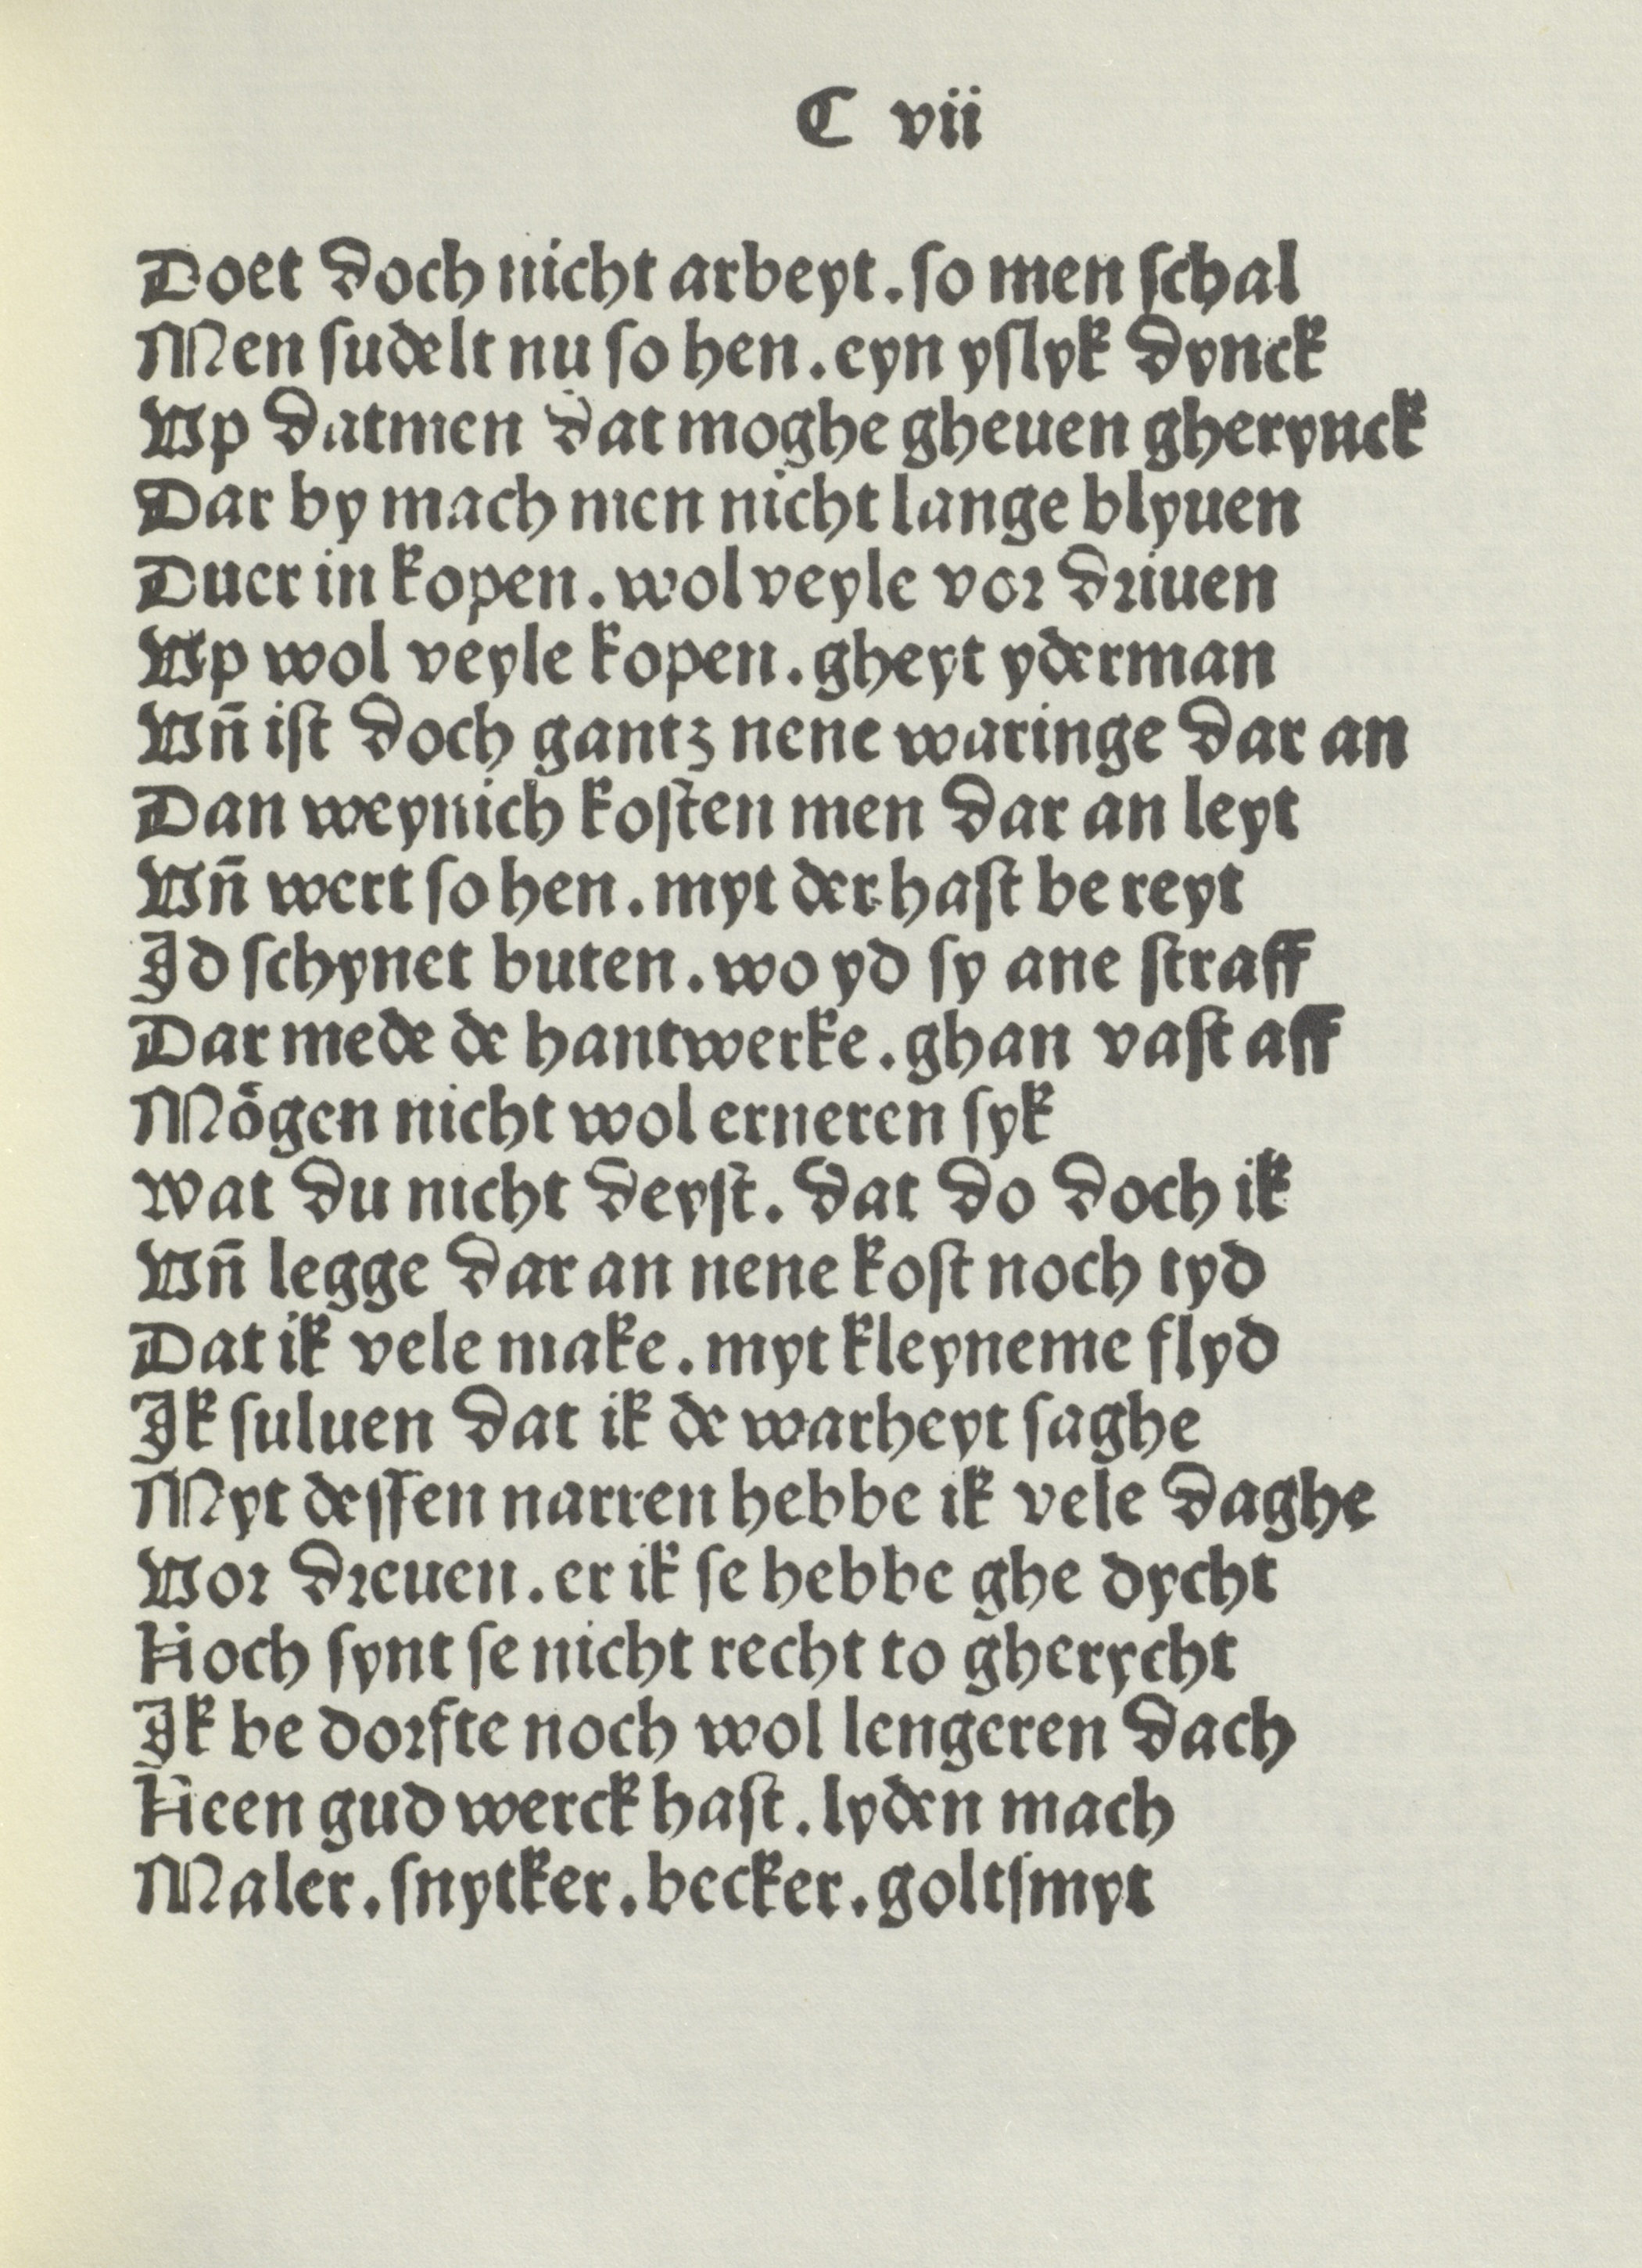 C vii
Doet doch nicht arbeyt. so men schal
Men sudelt nu so hen. eyn yslyk dynck
Up datmen dat moghe gheuen gherynck
Dar by mach men nicht lange blyuen
Duer in kopen. wol veyle vor driuen
Up wol veyle kopen. gheyt yderman
Un̄ ist doch gantz nene waringe dar an
Dan weynich kosten men dar an leyt
Un̄ wert so hen. myt der hast be reyt
Id schynet buten. wo yd sy ane straff
Dar mede de hantwerke. ghan vast aff
Moͤgen nicht wol erneren syk
Wat du nicht deyst. dat do doch ik
Un̄ legge dar an nene kost noch tyd
Dat ik vele make. myt kleyneme flyd
Ik suluen dat ik de warheyt saghe
Myt dessen narren hebbe ik vele daghe
Vor dreuen. er ik se hebbe ghe dycht
Noch synt se nicht recht to gherycht
Ik be dorfte noch wol lengeren dach
Neen gud werck hast. lyden mach
Maler. snytker. becker. goltsmyt